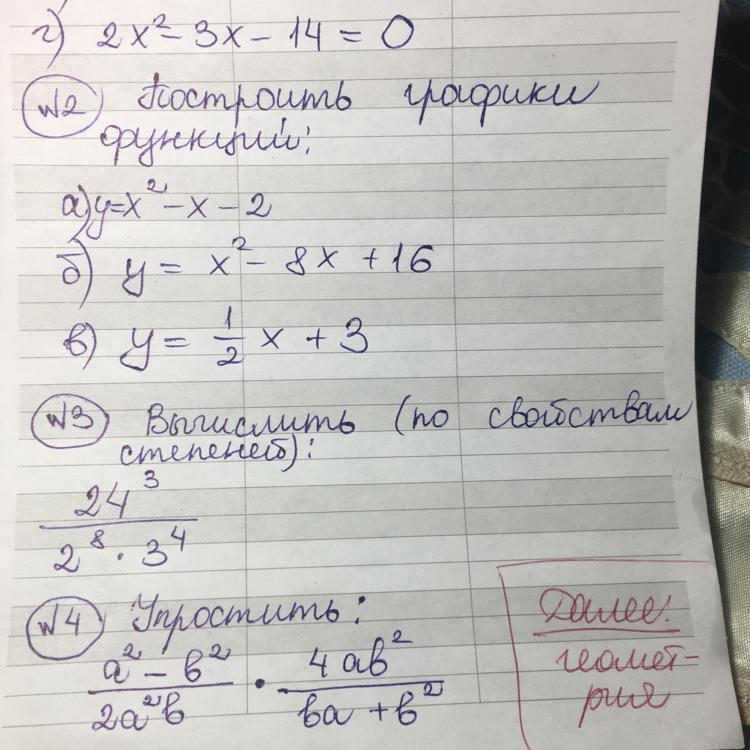 г) 2x² - 3x - 14 = 0
№2 Построить графики
функций:
а) y = x² - x - 2
б) y = x² - 8x + 16
в) y = 1/2 x + 3
№3 Вычислить (по свойствам
степеней):
24³ / (2⁸ · 3⁴)
№4 Упростить:
(a² - b²) / (2a²b) · 4ab² / (ba + b²)
Далее:
геомет-
рия